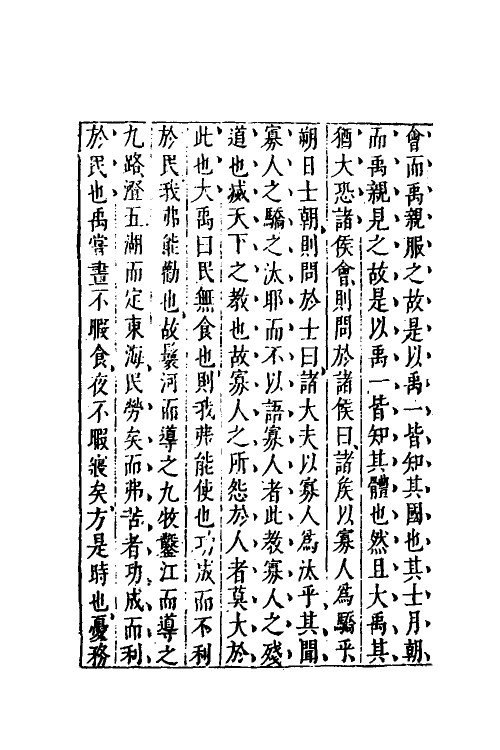 會而禹親服之故是以禹一皆知其國也其士月朝
而禹親見之故是以禹一皆知其體也然且大禹其
猶大恐諸侯會則問於諸侯曰諸侯以寡人為驕乎
朔日士朝則問於士曰諸大夫以寡人為汰乎其聞
寡人之驕之汰耶而不以語寡人者此教寡人之殘
道也滅天下之教也故寡人之所怨於人者莫大於
此也大禹曰民無食也則我弗能使也功成而不利
於民我弗能勸也故鬟河而導之九牧鑿江而導之
九路澄五湖而定東海民勞矣而弗苦者功成而利
於民也禹嘗晝不暇食夜不暇寢矣方是時也憂務